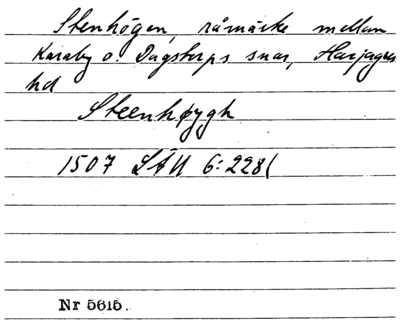 Stenhögen, råmärke mellan
Karaby o. Dagstorps snar, Harjagers
hd
Steenhøygh
1507 LÄU 6:228(
Nr 5615.